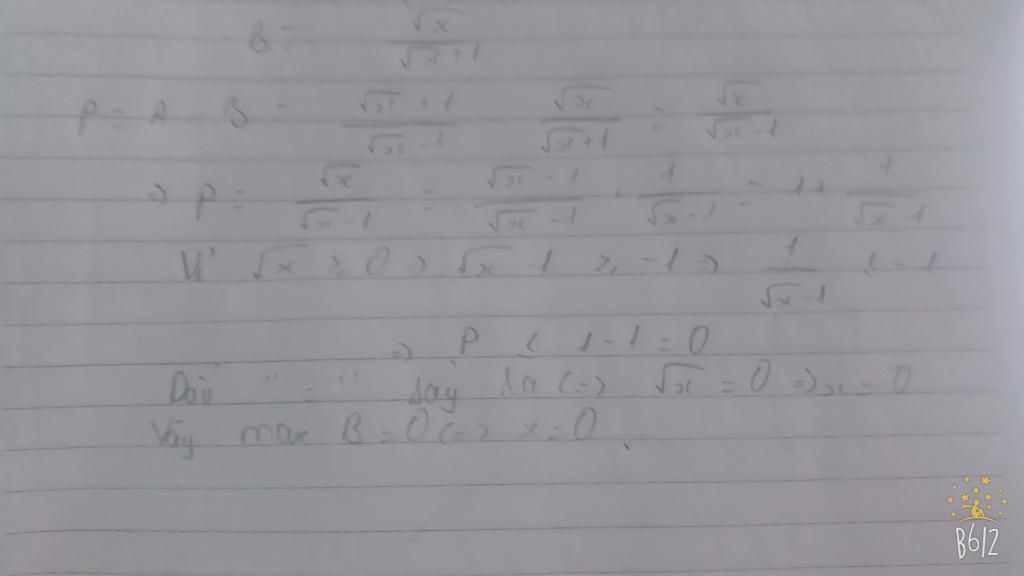 B = √x / (√x + 1)
P = A B = (√x + 1)/(√x - 1) √x/(√x+1) = √x/(√x - 1)
⇒ P = √x/(√x - 1) = (√x - 1)/(√x - 1) + 1/(√x - 1) = 1 + 1/(√x - 1)
Vì √x ≥ 0 ⇒ √x - 1 ≥ -1 ⇒ 1/(√x - 1) ≤ -1
⇒ P ≤ 1 - 1 = 0
Dấu " = " xảy ra (=) √x = 0 ⇒ x = 0
Vậy max B = 0 (=) x = 0
B612